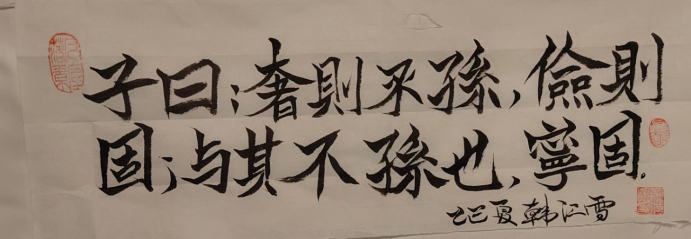 子曰：奢則不孫，儉則
固；与其不孫也，寧固.
乙巳夏韩江雪